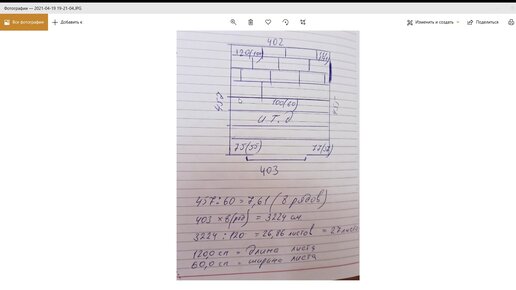 Фотографии — 2021-04-19 19-21-04.JPG
Все фотографии
Добавить к
Изменить и создать
Поделиться
402
120(60)
457
457
100(60)
И Т. д
75(55)
403
457 : 60 = 7,61 (8 рядов)
403 × 8(ряд) = 3224 см.
3224 : 120 = 26,86 листов = 27 листов
120,0 сп = длина листа
60,0 сп = ширина листа